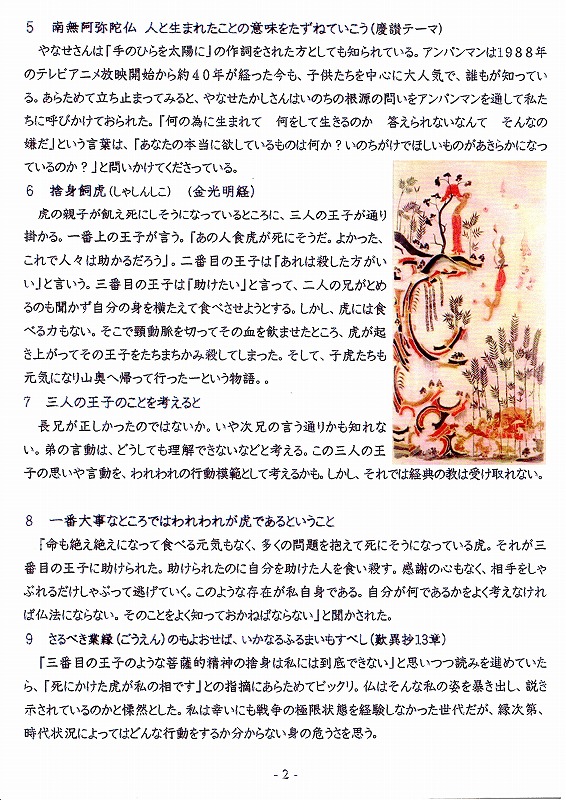 5　南無阿弥陀仏　人と生まれたことの意味をたずねていこう(慶讃テーマ)
　やなせさんは「手のひらを太陽に」の作詞をされた方としても知られている。アンパンマンは1988年
のテレビアニメ放映開始から約40年が経った今も、子供たちを中心に大人気で、誰もが知ってい
る。あらためて立ち止まってみると、やなせたかしさんはいのちの根源の問いをアンパンマンを通して私た
ちに呼びかけておられた。「何の為に生まれて　何をして生きるのか　答えられないなんて　そんなの
嫌だ」という言葉は、「あなたの本当に欲しているものは何か?いのちがけでほしいものがあきらかになっ
ているのか?」と問いかけてくださっている。
6　捨身飼虎(しゃしんしこ)　(金光明経)
　虎の親子が飢え死にしそうになっているところに、三人の王子が通り
掛かる。一番上の王子が言う。「あの人食虎が死にそうだ。よかった、
これで人々は助かるだろう」。二番目の王子は「あれは殺した方がい
い」と言いう。三番目の王子は「助けたい」と言って、二人の兄がとめ
るのも聞かず自分の身を横たえて食べさせようとする。しかし、虎には食
べる力もない。そこで頸動脈を切ってその血を飲ませたところ、虎が起
き上がってその王子をたちまちかみ殺してしまった。そして、子虎たちも
元気になり山奥へ帰って行ったーという物語。。
7　三人の王子のことを考えると
　長兄が正しかったのではないか。いや次兄の言う通りかも知れな
い。弟の言動は、どうしても理解できないなどと考える。この三人の王
子の思いや言動を、われわれの行動模範として考えるかも。しかし、それでは経典の教は受け取れない。
8　一番大事なところではわれわれが虎であるということ
　『命も絶え絶えになって食べる元気もなく、多くの問題を抱えて死にそうになっている虎。それが三
番目の王子に助けられた。助けられたのに自分を助けた人を食い殺す。感謝の心もなく、相手をしゃ
ぶれるだけしゃぶって逃げていく。このような存在が私自身である。自分が何であるかをよく考えなけれ
ば仏法にならない。そのことをよく知っておかねばならない』と聞かされた。
9　さるべき業縁(ごうえん)のもよおせば、いかなるふるまいもすべし(歎異抄13章)
　「三番目の王子のような菩薩的精神の捨身は私には到底できない」と思いつつ読みを進めていた
ら、「死にかけた虎が私の相です」との指摘にあらためてビックリ。仏はそんな私の姿を暴き出し、説き
示されているのかと慄然とした。私は幸いにも戦争の極限状態を経験しなかった世代だが、縁次第、
時代状況によってはどんな行動をするか分からない身の危うさを思う。
- 2 -